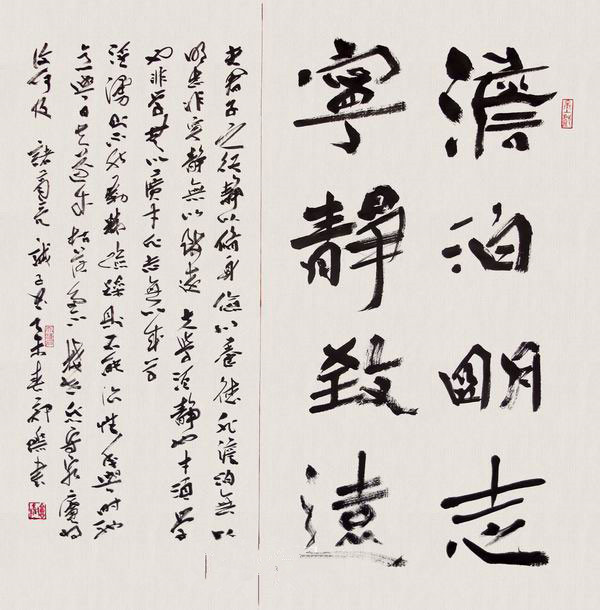 澹泊明志
寧靜致遠
夫君子之行靜以脩身儉以養德非澹泊無以
明志非寧靜無以致遠夫學須靜也才須學
也非學無以廣才非志無以成學
淫漫則不能勵精險躁則不能治性年與時馳
意與日去遂成枯落多不接世悲守窮廬將
復何及 諸葛亮誡子書 乙未春 書